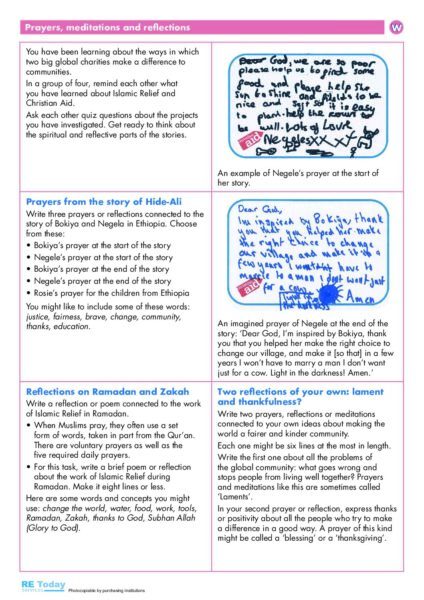 Prayers, meditations and reflections
W
You have been learning about the ways in which
two big global charities make a difference to
communities.
In a group of four, remind each other what
you have learned about Islamic Relief and
Christian Aid.
Ask each other quiz questions about the projects
you have investigated. Get ready to think about
the spiritual and reflective parts of the stories.
Dear God, we are so poor
please help us to find some
food and please help the
sun to shine and fields to be
nice and soft so it is easy
to plant. help the
be well. Lots of Love
aid Negeles xx
An example of Negele's prayer at the start of
her story.
Prayers from the story of Hide-Ali
Write three prayers or reflections connected to the
story of Bokiya and Negela in Ethiopia. Choose
from these:
• Bokiya's prayer at the start of the story
• Negele's prayer at the start of the story
• Bokiya's prayer at the end of the story
• Negele's prayer at the end of the story
• Rosie's prayer for the children from Ethiopia
You might like to include some of these words:
justice, fairness, brave, change, community,
thanks, education.
Dear God,
I'm inspired by Bokiya, thank
you that you helped her make
the right choice to change
our village and make it so a
few years I wouldn't have to
to a man I dont want just
aid for a cow.
Light in
the darkness Amen
An imagined prayer of Negele at the end of the
story: 'Dear God, I'm inspired by Bokiya, thank
you that you helped her make the right choice to
change our village, and make it [so that] in a few
years I won't have to marry a man I don't want
just for a cow. Light in the darkness! Amen.'
Reflections on Ramadan and Zakah
Write a reflection or poem connected to the work
of Islamic Relief in Ramadan.
• When Muslims pray, they often use a set
form of words, taken in part from the Qur'an.
There are voluntary prayers as well as the
five required daily prayers.
• For this task, write a brief poem or reflection
about the work of Islamic Relief during
Ramadan. Make it eight lines or less.
Here are some words and concepts you might
use: change the world, water, food, work, tools,
Ramadan, Zakah, thanks to God, Subhan Allah
(Glory to God).
Two reflections of your own: lament
and thankfulness?
Write two prayers, reflections or meditations
connected to your own ideas about making the
world a fairer and kinder community.
Each one might be six lines at the most in length.
Write the first one about all the problems of
the global community: what goes wrong and
stops people from living well together? Prayers
and meditations like this are sometimes called
'Laments'.
In your second prayer or reflection, express thanks
or positivity about all the people who try to make
a difference in a good way. A prayer of this kind
might be called a 'blessing' or a 'thanksgiving'.
RE Today
SERVICES
Photocopiable by purchasing institutions